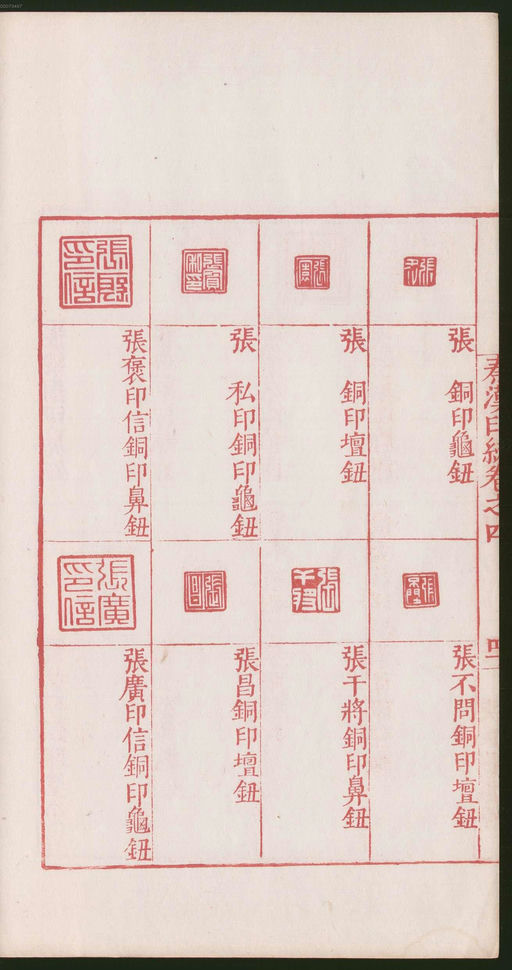 秦漢印統卷之四
四一
張　銅印龜鈕
張　銅印壇鈕
張　私印銅印龜鈕
張褒印信銅印鼻鈕
張不問銅印壇鈕
張干將銅印鼻鈕
張昌銅印壇鈕
張廣印信銅印龜鈕
張廣印信
00073467